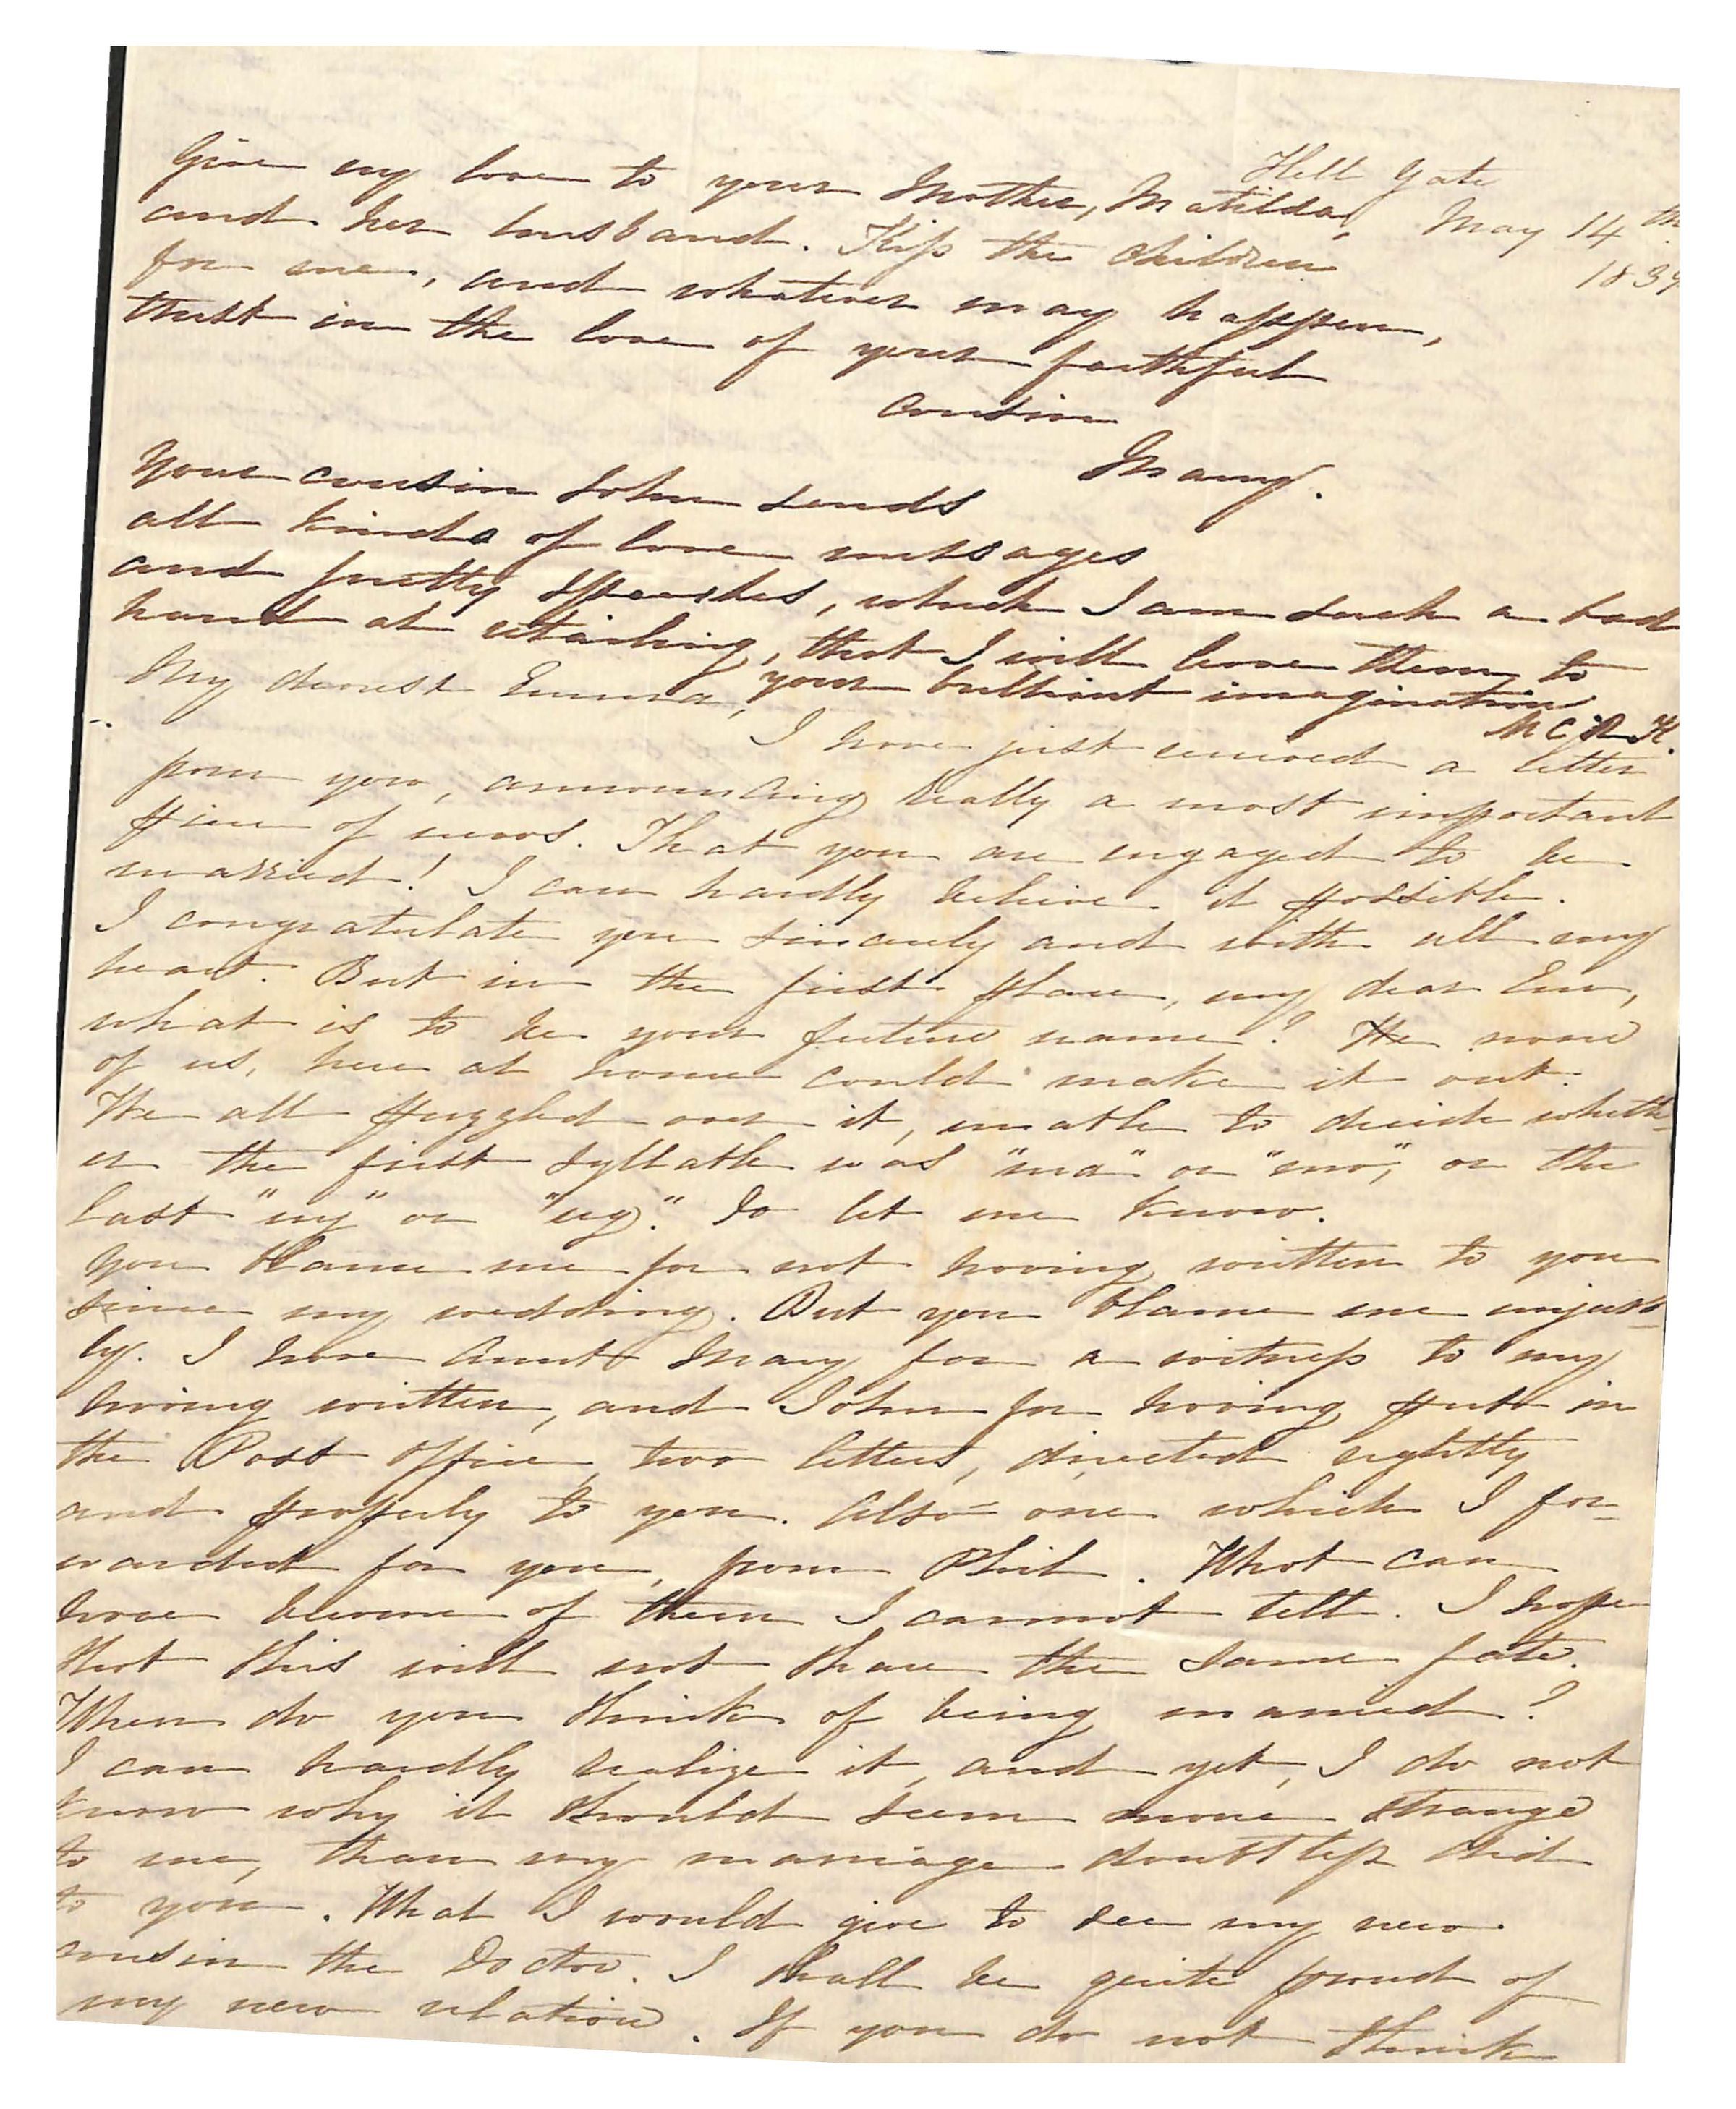 Hell Gate
May 14th
1839
Give my love to your Mother, Matilda,
and her husband. Kiss the children
for me, and whatever may happen,
trust in the love of your faithful
cousin
Mary.
Your cousin John sends
all kinds of love messages
and pretty speeches, which I am such a bad
hand at retailing, that I will leave them to
your brilliant imagination
M C R K.
My dearest Emma,
I have just received a letter
from you, announcing really a most important
piece of news. That you are engaged to be
married! I can hardly believe it possible.
I congratulate you sincerely and with all my
heart. But in the first place, my dear Em,
what is to be your future name? We none
of us, here at home could make it out.
We all puzzled over it, unable to decide wheth-
er the first syllable was "ma" or "mo", or the
last "ny" or "ug". Do let me know.
You blame me for not having written to you
since my wedding. But you blame me unjust-
ly. I have Aunt Mary for a witness to my
having written, and John for having put in
the Post Office, two letters, directed rightly
and properly to you. Also one which I for-
warded for you, from Phil. What can
have become of them I cannot tell. I hope
that this will not share the same fate.
When do you think of being married?
I can hardly realize it, and yet, I do not
know why it should seem more strange
to me, than my marriage doubtless did
to you. What I would give to see my new
cousin the Doctor. I shall be quite proud of
my new relation. If you do not think